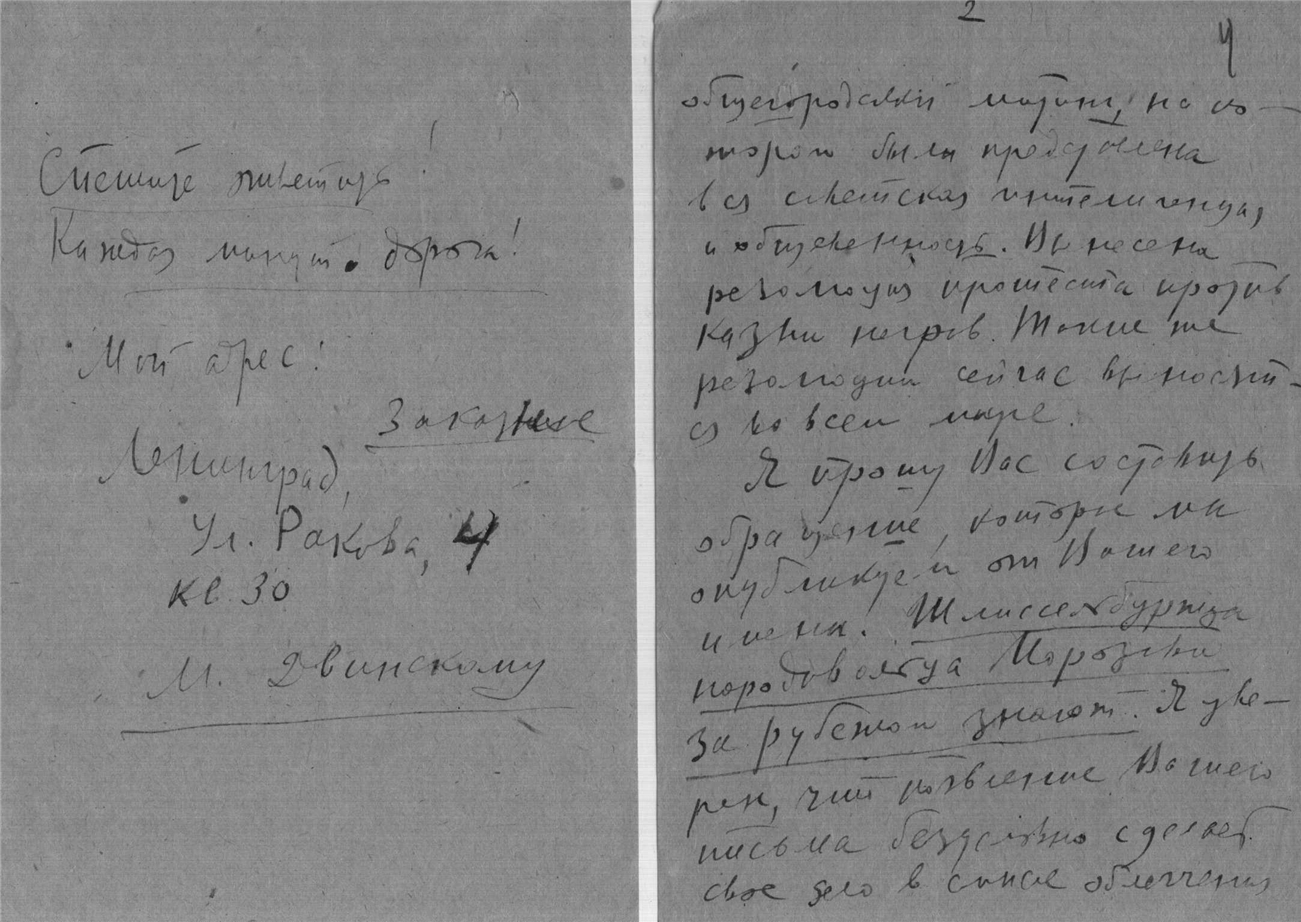 Спешите ответить!
Каждая минута дорога!
Мой адрес:
Заказное
Ленинград,
Ул. Ракова, 4
кв. 30
М. Двинскому
2
4
общегородской митинг, на ко-
тором была представлена
вся советская интеллигенция,
и общественность. Вынесена
резолюция протеста против
казни негров. Такие же
резолюции сейчас выносят-
ся во всем мире.
Я прошу Вас составить
обращение, которые мы
опубликуем от Вашего
имени. Шлиссельбуржца
народовольца Морозова
за рубежом знают. Я уве-
рен, что появление Вашего
письма безусловно сделает
свое дело в смысле облегчения